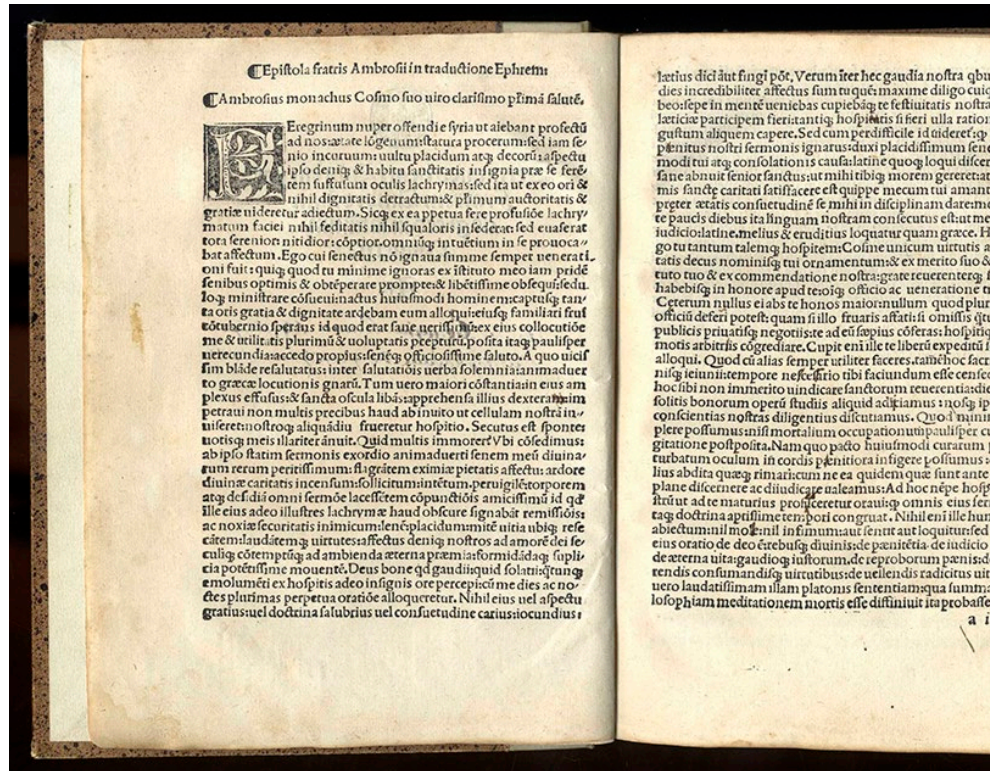 ¶Epistola fratris Ambrosii in traductione Ephrem:
¶Ambrosius monachus Cosmo suo uiro clarissimo primā salutē.
PEregrinum nuper offendi e syria ut aiebant profectū
ad nos: ætate lōgeuum: statura procerum: sed iam se⸗
nio incuruum: uultu placidum atq; decorū: aspectu
ipso deniq; & habitu sanctitatis insignia præ se ferē⸗
tem suffusum oculis lachrymas: sed ita ut ex eo ori &
nihil dignitatis detractum: & plimum auctoritatis &
gratiæ uideretur adiectum. Sicq; ex ea ppetua fere profusiōe lachry⸗
matum faciei nihil feditatis nihil squaloris insederat: sed euaserat
tota serenior: nitidior: cōptior. omniūq; intuētium in se prouoca⸗
bat affectum. Ego cui senectus nō ignaua summe semper uenerati⸗
oni fuit: quiq; quod tu minime ignoras ex īstituto meo iam pridē
senibus optimis & obtēperare prompte: & libētissime obsequi: sedu
loq; ministrare cōsueui: nactus huiusmodi hominem: captusq; tan⸗
ta oris gratia & dignitate ardebam eum alloqui: eiusq; familiari frui
cōtubernio sperans id quod erat sane uerissimū: ex eius collocutiōe
me & utilitatis plurimū & uoluptatis pcepturū. posita itaq; paulisper
uerecundia: accedo propius: senēq; officiosissime saluto. A quo uicis
sim blāde resalutatus: inter salutatiōis uerba solemnia: animaduer
to græcæ locutionis ignarū. Tum uero maiori cōstantia: in eius am
plexus effusus: & sancta oscula libās: apprehensa illius dextera: 
petraui non multis precibus haud ab inuito ut cellulam nostrā in⸗
uiseret: nostroq; aliquādiu frueretur hospitio. Secutus est sponte:
uotisq; meis illariter ānuit. Quid multis immorer? Vbi cōsedimus:
ab ipso statim sermonis exordio animaduerti senem meū diuina⸗
rum rerum peritissimum: flagrātem eximiæ pietatis affectu: ardore
diuinæ caritatis incensum: sollicitum: intētum. peruigilē: torporem
atq; desidiā omni sermōe lacessētem cōpunctiōis amicissimū id qd
ille eius adeo illustres lachrymæ haud obscure signabāt remissiōis:
ac noxiæ securitatis inimicum: lenē: placidum: mitē uitia ubiq; rese
cātem: laudātemq; uirtutes: affectus deniq; nostros ad amorē dei se⸗
culiq; cōtemptūq; ad ambienda æterna præmia: formidādaq; supli⸗
cia potētissime mouentē. Deus bone qd gaudii: quid solatii: qtunq;
emolumēti ex hospitis adeo insignis ore percepi: cū me dies ac no⸗
ctes plurimas perpetua oratiōe alloqueretur. Nihil eius uel aspectu
gratius: uel doctrina salubrius uel consuetudine carius: iocundius:
lætius dici aut fingi pōt. Verum īter hec gaudia nostra qbu
dies incredibiliter affectus sum tu quē: maxime diligo cuiq
beo: sepe in mentē ueniebas cupiebāq; te festiuitatis nostra
læticiæ participem fieri: tantiq; hospitis si fieri ulla ration
gustum aliquem capere. Sed cum perdifficile id uideret: q
penitus nostri sermonis ignarus: duxi placidissimum sene
modi tui atq; consolationis causa: latine quoq; loqui discer
sane abnuit senior sanctus: ut mihi tibiq; morem gereret: at
mis sancte caritati satisfacere est quippe mecum tui amant
preter ætatis consuetudinē se mihi in disciplinam dare: mo
te paucis diebus ita linguam nostram consecutus est: ut me
iudicio: latine. melius & eruditius loquatur quam græce. H
go tu tantum talemq; hospitem: Cosme unicum uirtutis a
tatis decus nominisq; tui ornamentum: & ex merito suo &
tuto tuo & ex commendatione nostra: grate reuerenterq; 
habebisq; in honore apud te: oīq; officio ac ueneratione t
Ceterum nullus ei abs te honos maior: nullum quod plur
officiū deferi potest: quam si illo fruaris affati: si omissis qtu
publicis priuatisq; negotiis: te ad eū sæpius cōferas: hospitiq
motis arbitris cōgrediare. Cupit eni ille te liberū expeditū i
alloqui. Quod cū alias semper utiliter faceres. tamē hoc sacr
nisq; ieiunii: tempore necessario tibi faciundum esse cense
hoc sibi non immerito uindicare sanctorum reuerentia: die
solitis bonorum operū studiis aliquid adiciamus: nosq; ip
conscientias nostras diligentius discutiamus. Quod 
plere possumus: nisi mortalium occupationum paulisper cu
gitatione postposita. Nam quo pacto huiusmodi curarum
turbatum oculum in cordis penitiora infigere possumus: 
lius abdita quæq; rimari: cum ne ea quidem quæ sunt ante
plane discernere ac diiudicare ualeamus: Ad hoc nēpe hosp
strū ut ad te maturius proficeretur oraui: q omnis eius seri
taq; doctrina aptissime tempori congruat. Nihil eni ille hun
abiectum: nil mole: nil infimum: aut sentit aut loquitur: sed
eius oratio de deo ē: rebusq; diuinis: de pænitētia. de iudicio
de æterna uita: gaudioq; iustorum. de reproborum pænis: de
rendis consumandisq; uirtutibus: de uellendis radicitus uit
uero laudatissimam illam platonis sententiam: qua summa
losophiam meditationem mortis esse diffiniuit ita probasse
a i